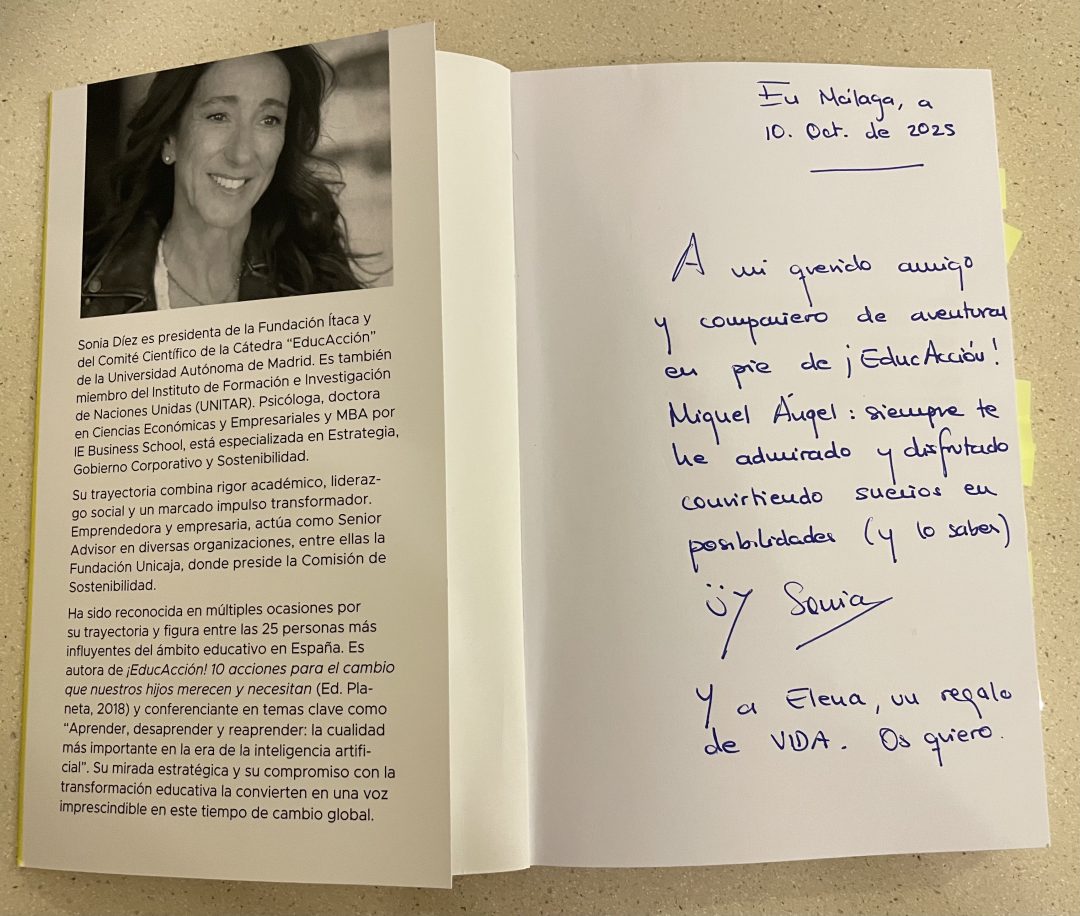 Sonia Díez es presidenta de la Fundación Ítaca y
del Comité Científico de la Cátedra “EducAcción”
de la Universidad Autónoma de Madrid. Es también
miembro del Instituto de Formación e Investigación
de Naciones Unidas (UNITAR). Psicóloga, doctora
en Ciencias Económicas y Empresariales y MBA por
IE Business School, está especializada en Estrategia,
Gobierno Corporativo y Sostenibilidad.
Su trayectoria combina rigor académico, lideraz-
go social y un marcado impulso transformador.
Emprendedora y empresaria, actúa como Senior
Advisor en diversas organizaciones, entre ellas la
Fundación Unicaja, donde preside la Comisión de
Sostenibilidad.
Ha sido reconocida en múltiples ocasiones por
su trayectoria y figura entre las 25 personas más
influyentes del ámbito educativo en España. Es
autora de ¡EducAcción! 10 acciones para el cambio
que nuestros hijos merecen y necesitan (Ed. Pla-
neta, 2018) y conferenciante en temas clave como
“Aprender, desaprender y reaprender: la cualidad
más importante en la era de la inteligencia artifi-
cial”. Su mirada estratégica y su compromiso con la
transformación educativa la convierten en una voz
imprescindible en este tiempo de cambio global.
En Málaga, a
10. Oct. de 2025
A mi querido amigo
y compañero de aventuras
en pie de ¡EducAcción!
Miguel Ángel: siempre te
he admirado y disfrutado
convirtiendo sueños en
posibilidades (y lo sabes)
Sonia
Y a Elena, un regalo
de VIDA. Os quiero.